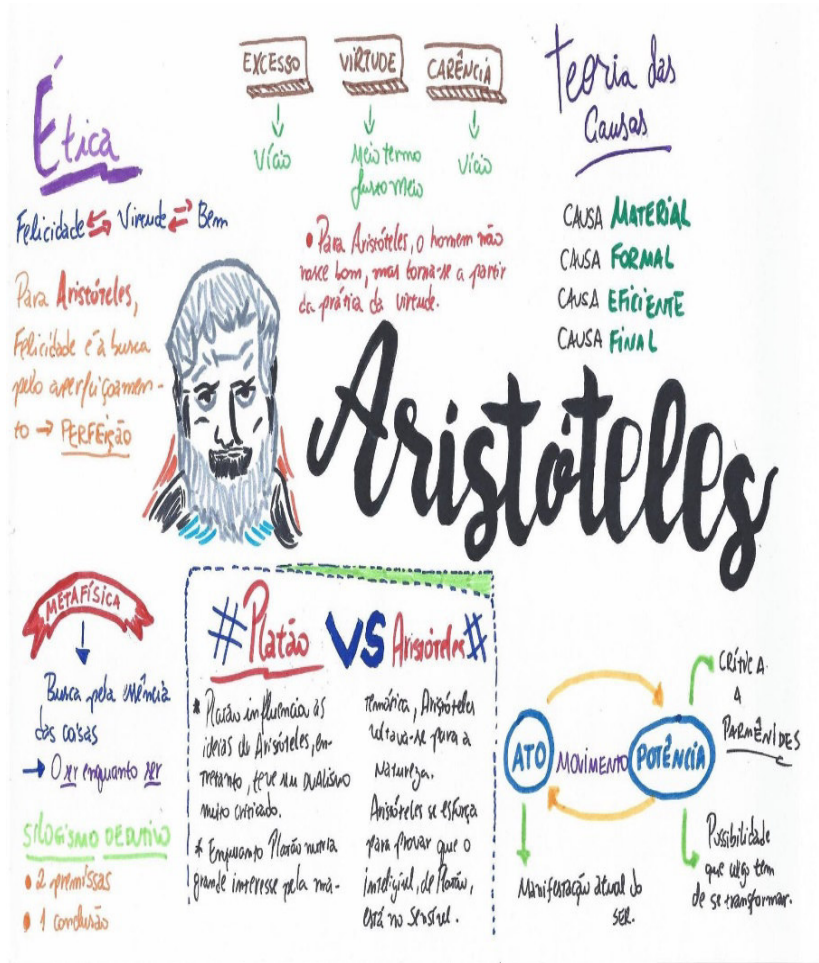 Ética
Felicidade ⇆ Virtude ⇄ Bem
Para Aristóteles,
Felicidade é a busca
pelo aperfeiçoamen-
to → PERFEIÇÃO
EXCESSO
VIRTUDE
CARÊNCIA
Vício
Meio termo
Justo meio
Vício
• Para Aristóteles, o homem não
nasce bom, mas torna-se a partir
da prática da virtude.
Teoria das
Causas
CAUSA MATERIAL
CAUSA FORMAL
CAUSA EFICIENTE
CAUSA FINAL
Aristóteles
METAFÍSICA
Busca pela essência
das coisas
→ O ser enquanto ser
SILOGISMO DEDUTIVO
• 2 premissas
• 1 conclusão
#Platão VS Aristóteles#
* Platão influencia as
ideias de Aristóteles, en-
tretanto, teve seu DUALISMO
muito criticado.
* Enquanto Platão nutria
grande interesse pela ma-
temática, Aristóteles
voltava-se para a
Natureza.
Aristóteles se esforça
para provar que o
inteligível, de Platão,
está no sensível.
ATO MOVIMENTO POTÊNCIA
CRÍTICA
A
PARMÊNIDES
Manifestação atual do
SER.
Possibilidade
que algo tem
de se transformar.